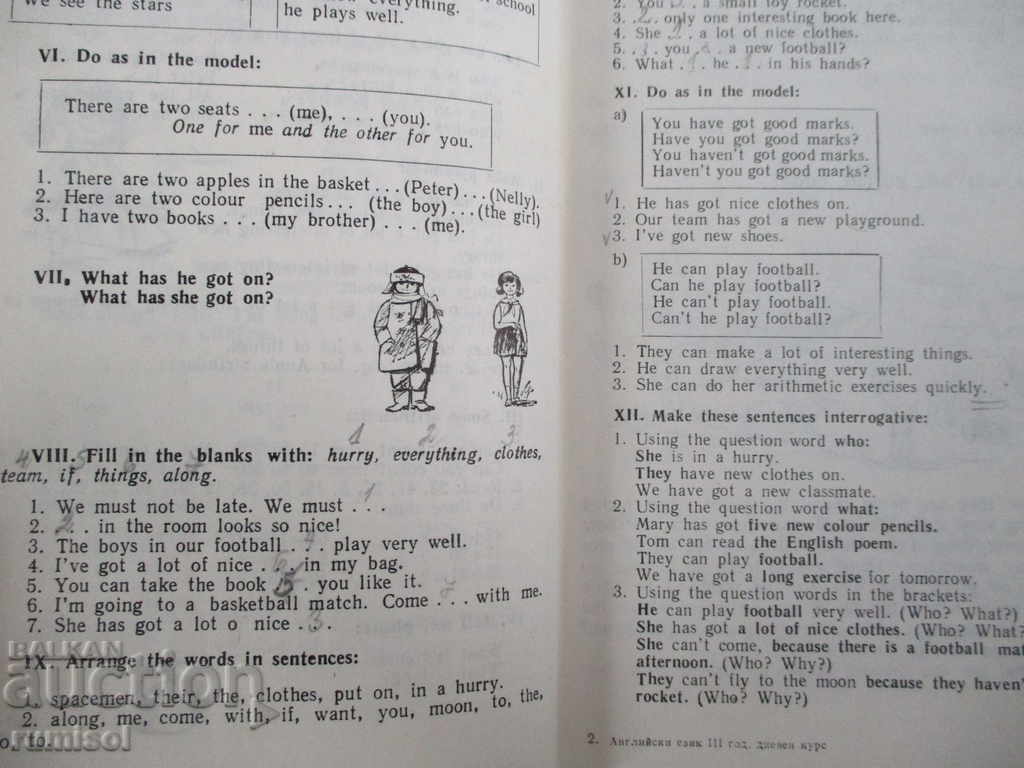 we see the stars
everything.
he plays well.
school
VI. Do as in the model:
There are two seats . . . (me), . . . (you).
One for me and the other for you.
1. There are two apples in the basket . . . (Peter) . . . (Nelly).
2. Here are two colour pencils . . . (the boy) . . . (the girl)
3. I have two books . . . (my brother) . . . (me).
VII, What has he got on?
What has she got on?
1 2 3
4 5 6 7
VIII. Fill in the blanks with: hurry, everything, clothes,
team, if, things, along.
1. We must not be late. We must . . . 1
2. . . . in the room looks so nice! 2
3. The boys in our football . . . play very well.
4. I've got a lot of nice . . . in my bag.
5. You can take the book 5 . you like it.
6. I'm going to a basketball match. Come . . . with me. 7
7. She has got a lot o nice . . . 3
IX. Arrange the words in sentences:
1. spacemen, their, the, clothes, put on, in a hurry.
2. along, me, come, with, if, want, you, moon, to, the,
o, to.
2. You . . . a small toy rocket.
3. . . . only one interesting book here.
4. She . . . a lot of nice clothes.
5. . . . you . . . a new football?
6. What . . . he . . . in his hands?
XI. Do as in the model:
a)
You have got good marks.
Have you got good marks?
You haven't got good marks.
Haven't you got good marks?
1. He has got nice clothes on.
2. Our team has got a new playground.
3. I've got new shoes.
b)
He can play football.
Can he play football?
He can't play football.
Can't he play football?
1. They can make a lot of interesting things.
2. He can draw everything very well.
3. She can do her arithmetic exercises quickly.
XII. Make these sentences interrogative:
1. Using the question word who:
She is in a hurry.
They have new clothes on.
We have got a new classmate.
2. Using the question word what:
Mary has got five new colour pencils.
Tom can read the English poem.
They can play football.
We have got a long exercise for tomorrow.
3. Using the question words in the brackets:
He can play football very well. (Who? What?)
She has got a lot of nice clothes. (Who? What?
She can't come, because there is a football mat
afternoon. (Who? Why?)
They can't fly to the moon because they haven'
rocket. (Who? Why?)
2. Английски език III год. дневен курс
BALKAN
auction
rumisol